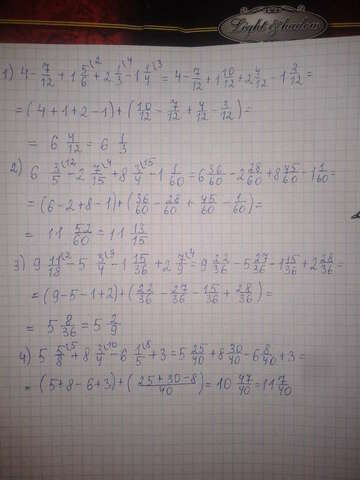 Light & shadow
1) 4 - 7/12 + 1 5/6\2 + 2 1/3\4 - 1 1/4\3 = 4 - 7/12 + 1 10/12 + 2 4/12 - 1 3/12 =
= (4 + 1 + 2 - 1) + (10/12 - 7/12 + 4/12 - 3/12) =
= 6 4/12 = 6 1/3
2) 6 3/5\12 - 2 7/15\4 + 8 3/4\15 - 1 1/60 = 6 36/60 - 2 28/60 + 8 45/60 - 1 1/60 =
= (6 - 2 + 8 - 1) + (36/60 - 28/60 + 45/60 - 1/60) =
= 11 52/60 = 11 13/15
3) 9 11/18\2 - 5 3/4\9 - 1 15/36 + 2 7/9\4 = 9 22/36 - 5 27/36 - 1 15/36 + 2 28/36 =
= (9 - 5 - 1 + 2) + (22/36 - 27/36 - 15/36 + 28/36) =
= 5 8/36 = 5 2/9
4) 5 5/8\5 + 8 3/4\10 - 6 1/5\8 + 3 = 5 25/40 + 8 30/40 - 6 8/40 + 3 =
= (5 + 8 - 6 + 3) + (25 + 30 - 8/40) = 10 47/40 = 11 7/40